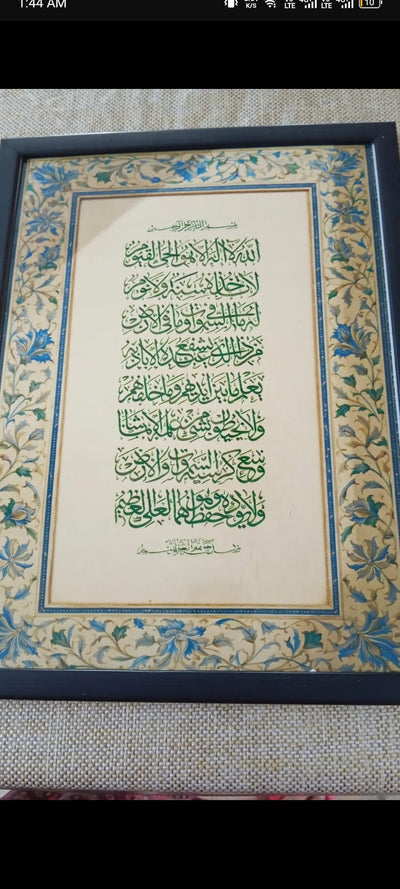 1:44 AM
K/S
LTE
LTE
10
بسم الله الرحمن الرحيم
الله لا إله إلا هو الحي القيوم
لا تأخذه سنة ولا نوم
له ما في السموات وما في الأرض
من ذا الذي يشفع عنده إلا بإذنه
يعلم ما بين أيديهم وما خلفهم
ولا يحيطون بشيء من علمه إلا بما شاء
وسع كرسيه السموات والأرض
ولا يؤوده حفظهما وهو العلي العظيم